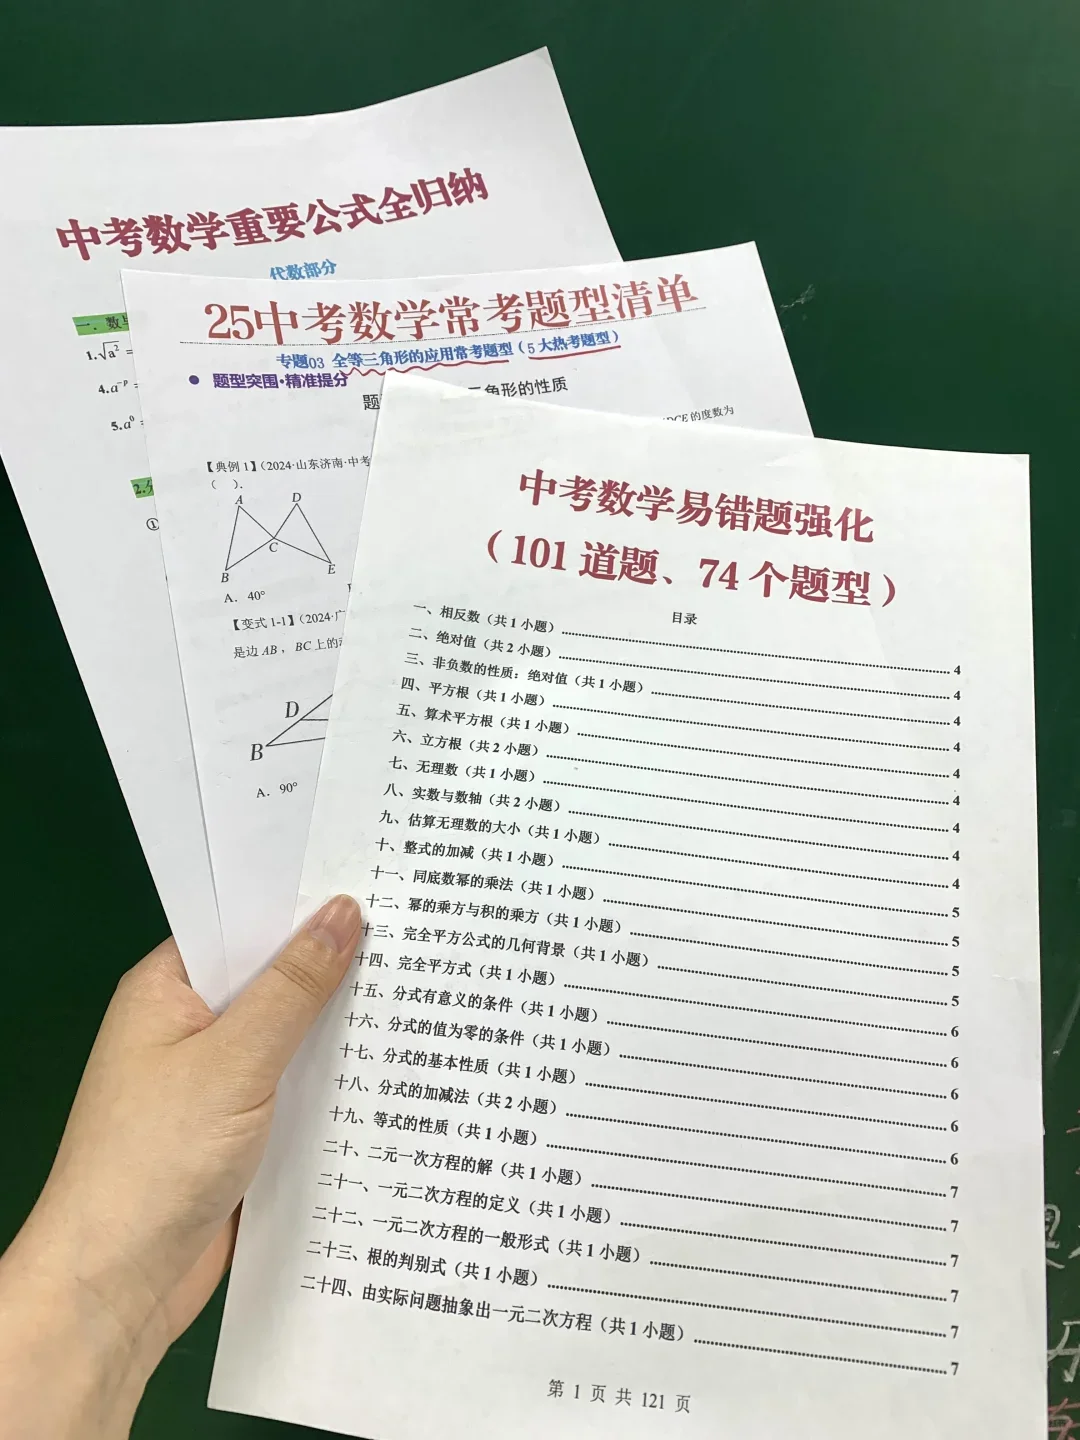 中考数学重要公式全归纳
代数部分
一．数与
1.√a² =
4.a⁻ᵖ =
5.a⁰ =
2.
①
25中考数学常考题型清单
专题03 全等三角形的应用常考题型（5大热考题型）
● 题型突围·精准提分
题
三角形的性质
DCE 的度数为
【典例1】（2024·山东济南·中考
（ ）．
A
D
C
B
E
A．40°
【变式1-1】（2024·广
是边 AB ，BC 上的
D
B
A．90°
中考数学易错题强化
（101 道题、74 个题型）
目录
一、相反数（共 1 小题）4
二、绝对值（共 2 小题）4
三、非负数的性质：绝对值（共 1 小题）4
四、平方根（共 1 小题）4
五、算术平方根（共 1 小题）4
六、立方根（共 2 小题）4
七、无理数（共 1 小题）4
八、实数与数轴（共 2 小题）4
九、估算无理数的大小（共 1 小题）4
十、整式的加减（共 1 小题）5
十一、同底数幂的乘法（共 1 小题）5
十二、幂的乘方与积的乘方（共 1 小题）5
十三、完全平方公式的几何背景（共 1 小题）5
十四、完全平方式（共 1 小题）6
十五、分式有意义的条件（共 1 小题）6
十六、分式的值为零的条件（共 1 小题）6
十七、分式的基本性质（共 1 小题）6
十八、分式的加减法（共 2 小题）6
十九、等式的性质（共 1 小题）7
二十、二元一次方程的解（共 1 小题）7
二十一、一元二次方程的定义（共 1 小题）7
二十二、一元二次方程的一般形式（共 1 小题）7
二十三、根的判别式（共 1 小题）7
二十四、由实际问题抽象出一元二次方程（共 1 小题）7
第 1 页 共 121 页